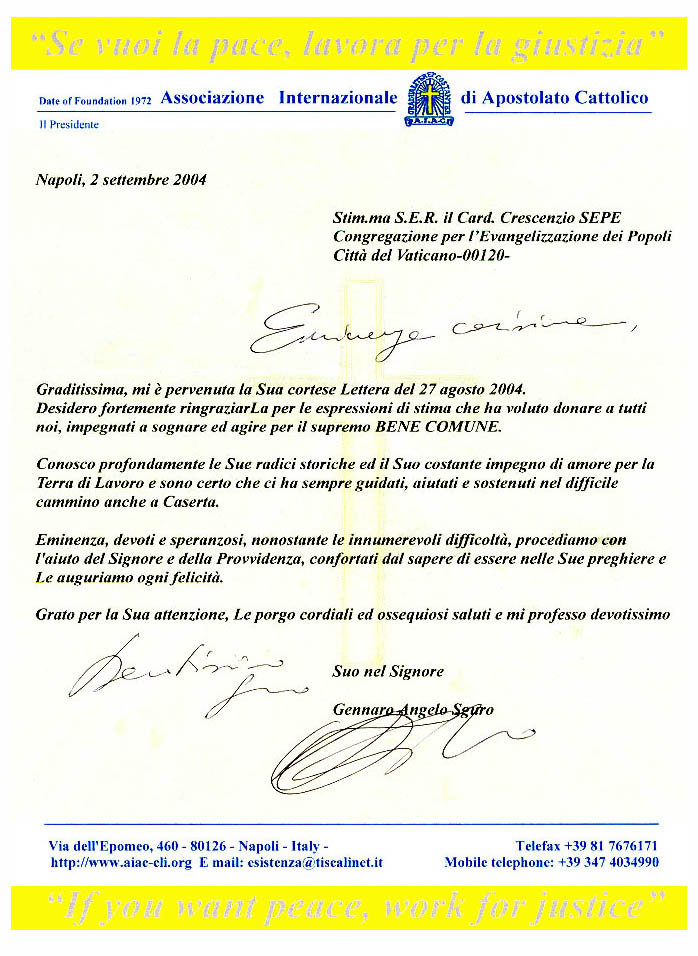 “Se vuoi la pace, lavora per la giustizia”
Date of Foundation 1972 Associazione Internazionale di Apostolato Cattolico
A.I.A.C.
Il Presidente
Napoli, 2 settembre 2004
Stim.ma S.E.R. il Card. Crescenzio SEPE
Congregazione per l'Evangelizzazione dei Popoli
Città del Vaticano-00120-
Eminenza carissima,
Graditissima, mi è pervenuta la Sua cortese Lettera del 27 agosto 2004.
Desidero fortemente ringraziarLa per le espressioni di stima che ha voluto donare a tutti
noi, impegnati a sognare ed agire per il supremo BENE COMUNE.
Conosco profondamente le Sue radici storiche ed il Suo costante impegno di amore per la
Terra di Lavoro e sono certo che ci ha sempre guidati, aiutati e sostenuti nel difficile
cammino anche a Caserta.
Eminenza, devoti e speranzosi, nonostante le innumerevoli difficoltà, procediamo con
l'aiuto del Signore e della Provvidenza, confortati dal sapere di essere nelle Sue preghiere e
Le auguriamo ogni felicità.
Grato per la Sua attenzione, Le porgo cordiali ed ossequiosi saluti e mi professo devotissimo
Suo nel Signore
Gennaro Angelo Sguro
Via dell'Epomeo, 460 - 80126 - Napoli - Italy -
Telefax +39 81 7676171
http://www.aiac-cli.org E mail: esistenza@tiscalinet.it
Mobile telephone: +39 347 4034990
“If you want peace, work for justice”